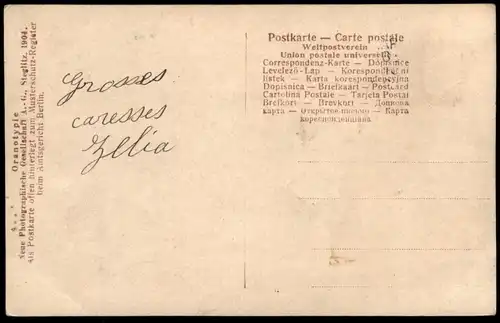 Postkarte — Carte postale
Weltpostverein
Union postale universelle
Correspondenz-Karte — Dopisnice
Levelező-Lap — Korespondenčni
listek — Karta korespondencyjna
Dopisnica — Briefkaart — Postcard
Cartolina Postale — Tarjeta Postal
Brefkort — Brevkort — Дописна
карта — Открытое письмо — Карта
кореспонденциина
Grosses
caresses
Zélia
Oranotypie
Neue Photographische Gesellschaft A.-G., Steglitz, 1904.
Als Postkarte offen hinterlegt zum Musterschutz-Register
beim Amtsgericht Berlin.